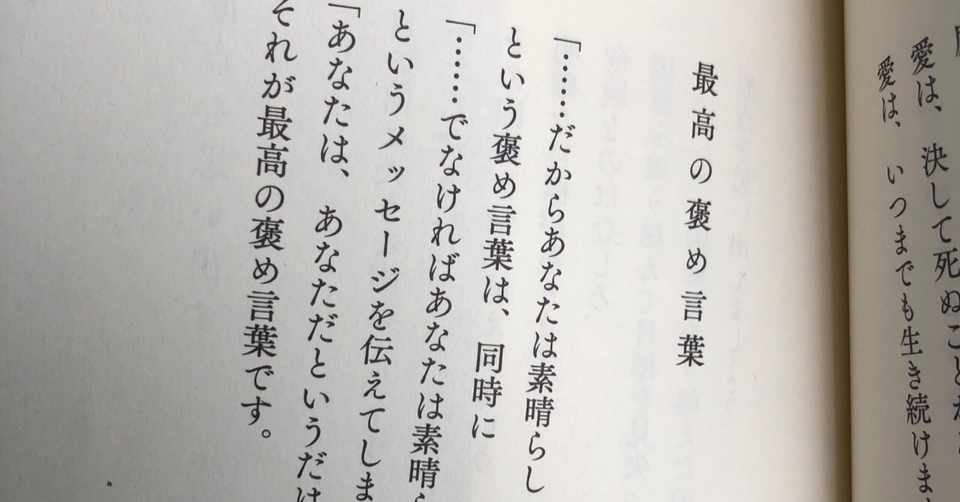 愛は、決して死ぬこと
愛は、いつまでも生き続けま
最高の褒め言葉
「……だからあなたは素晴らし
という褒め言葉は、同時に
「……でなければあなたは素晴ら
というメッセージを伝えてしま
「あなたは、あなただというだけ
それが最高の褒め言葉です。